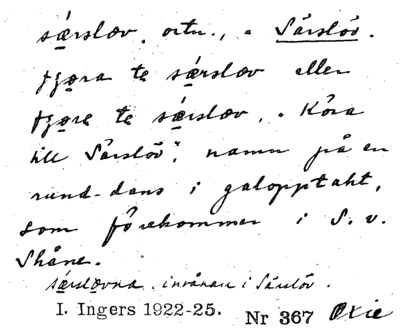 sǽrslǫv, ortn., = Särslöv.
tjǫra te sǽrslǫv eller
tjǫre te sǽrslǫv, "Köra
till Särslöv", namn på en
rund-dans i galopptakt,
som förekommer i S.v.
Skåne.
sǽrslǫvna, invånare i Särslöv.
I. Ingers 1922-25. Nr 367 Oxie